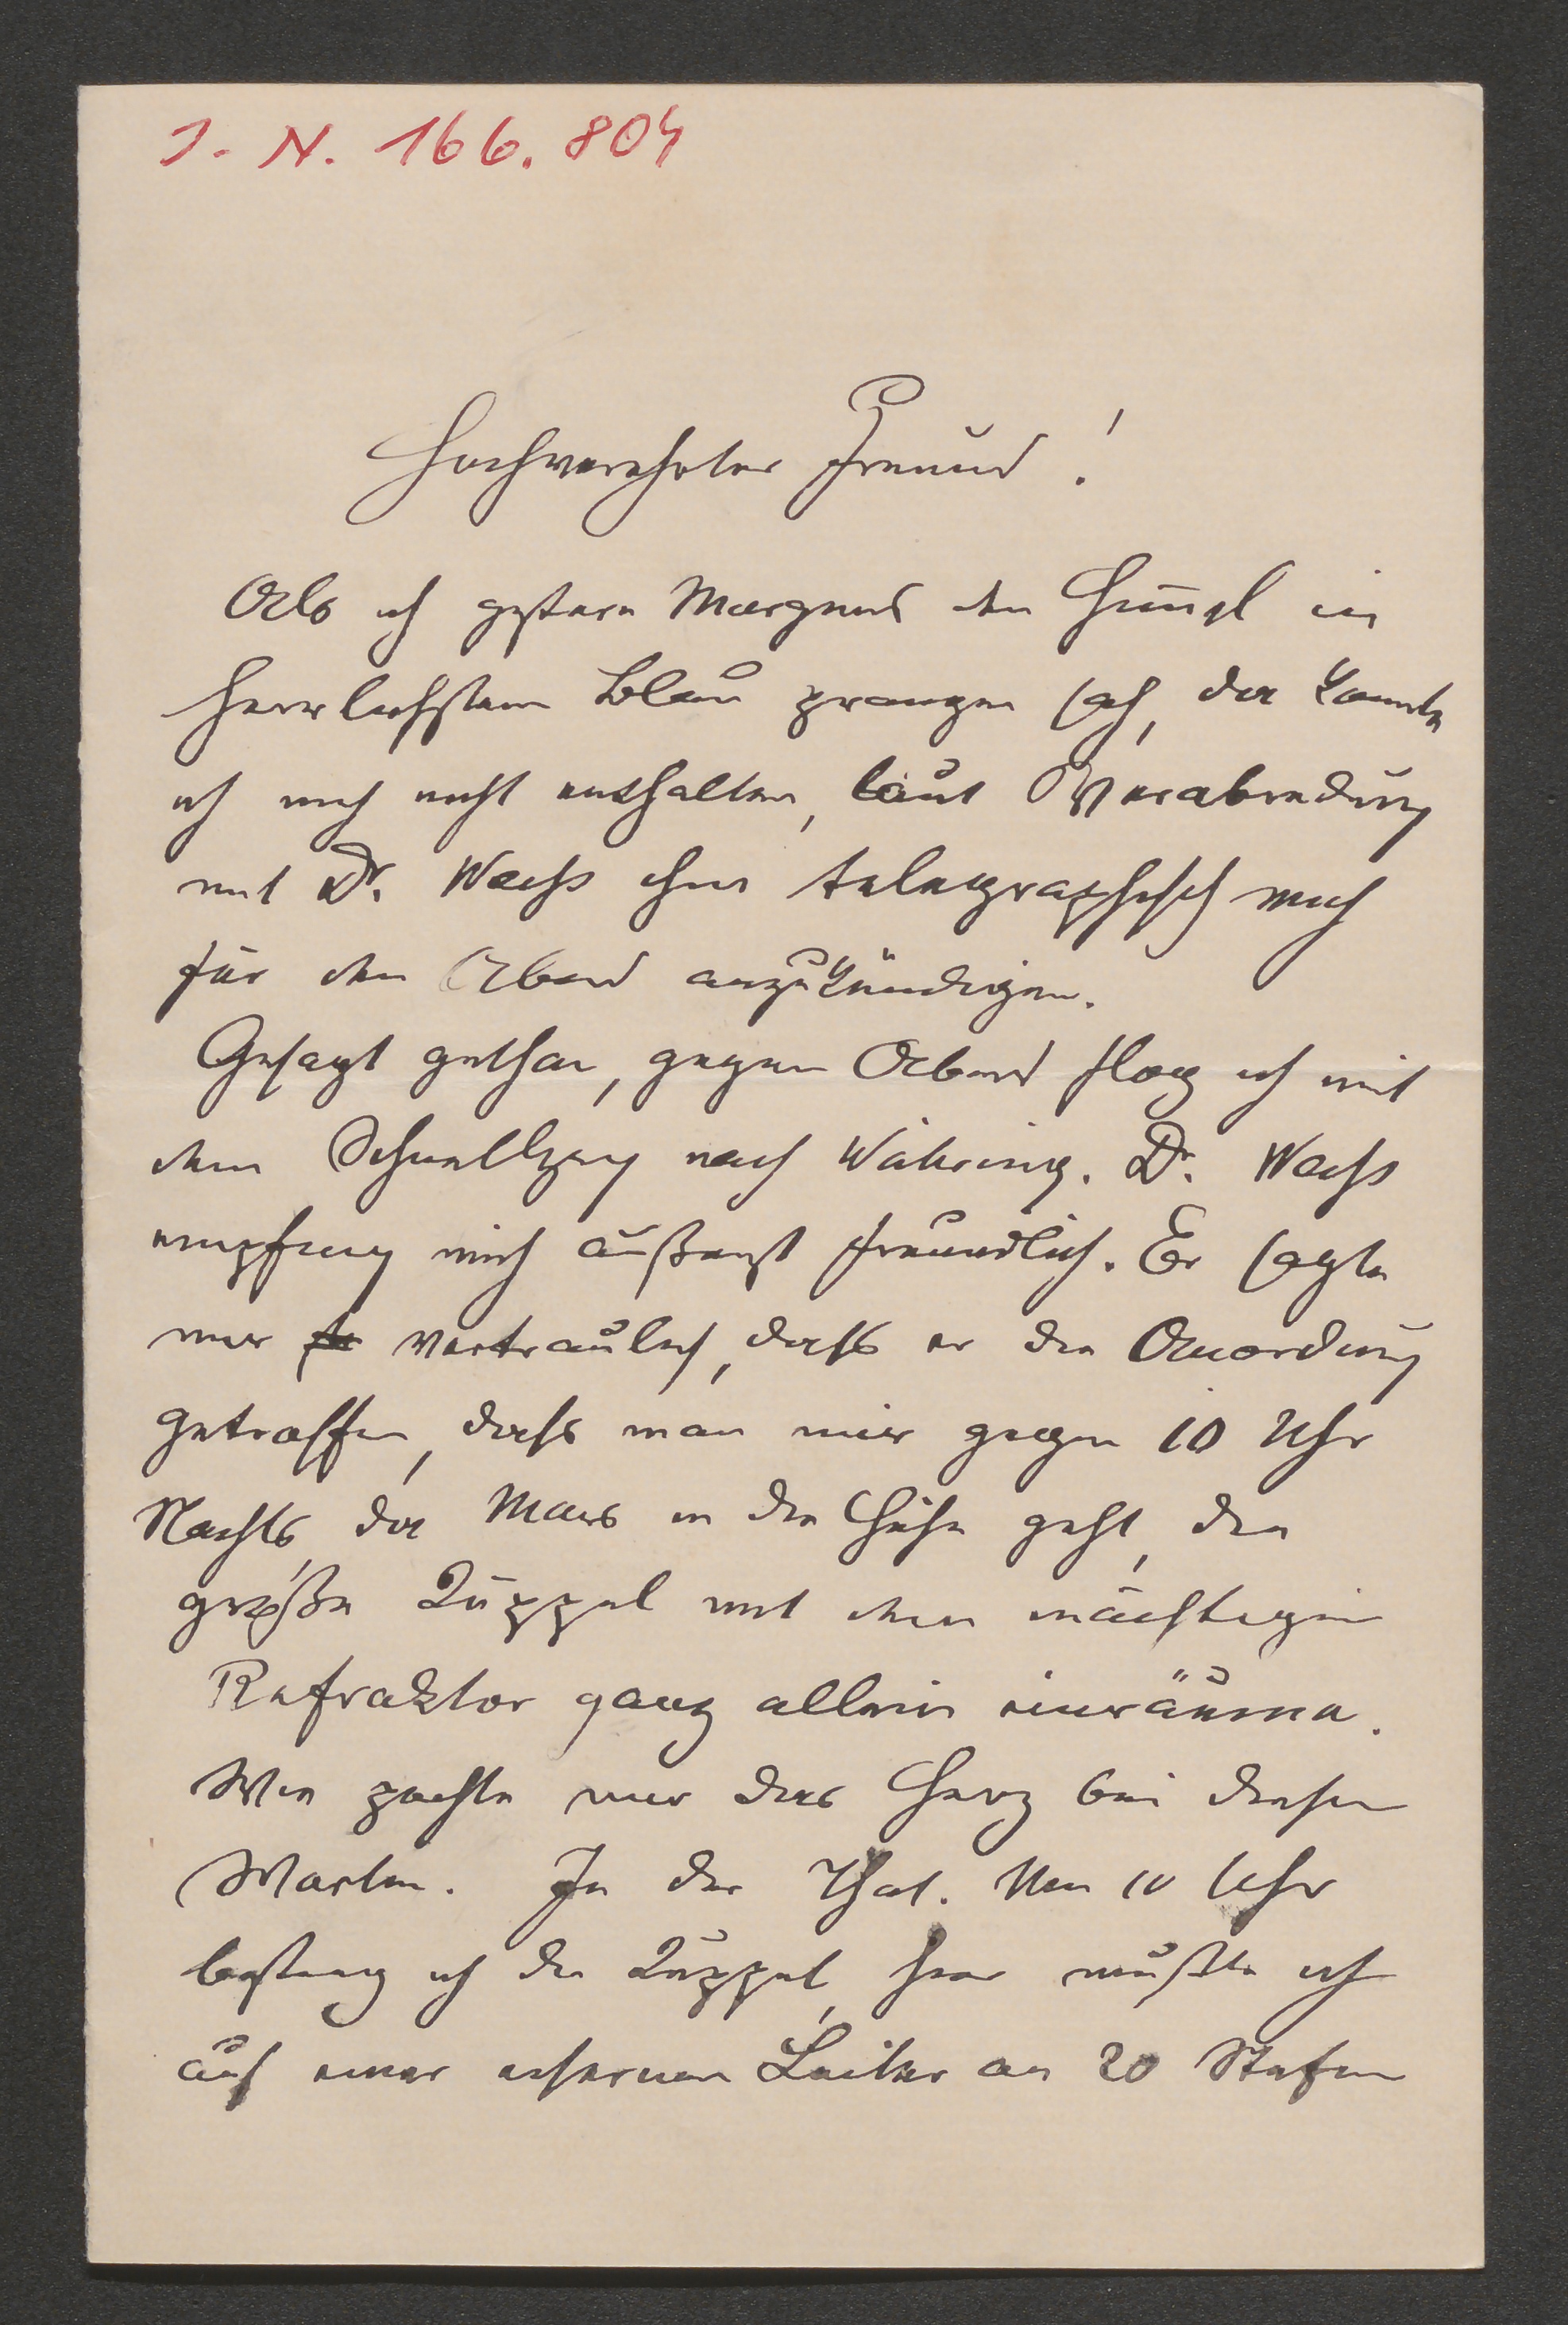 J. N. 166.804
Hochverehrter Freund!
Als ich gestern Morgens den Him̄el in
herrlichstem Blau prangen sah, da konnte
ich mich nicht enthalten, laut Verabredung
mit Dr. Weiß ihm telegraphisch mich
für den Abend anzukündigen.
Gesagt gethan, gegen Abend flog ich mit
dem Schnellzug nach Währing. Dr. Weiß
empfing mich äußerst freundlich. Er sagte
mir vertraulich, daß er die Anordnung
getroffen, daß man mir gegen 10 Uhr
Nachts, da Mars in die Höhe geht, die
große Kuppel mit dem mächtigen
Refraktor ganz allein einräume.
Wie pochte mir das Herz bei diesen
Worten. In der That. Um 10 Uhr
bestieg ich die Kuppel, hier mußte ich
auf einer eisernen Leiter an 20 Stufen